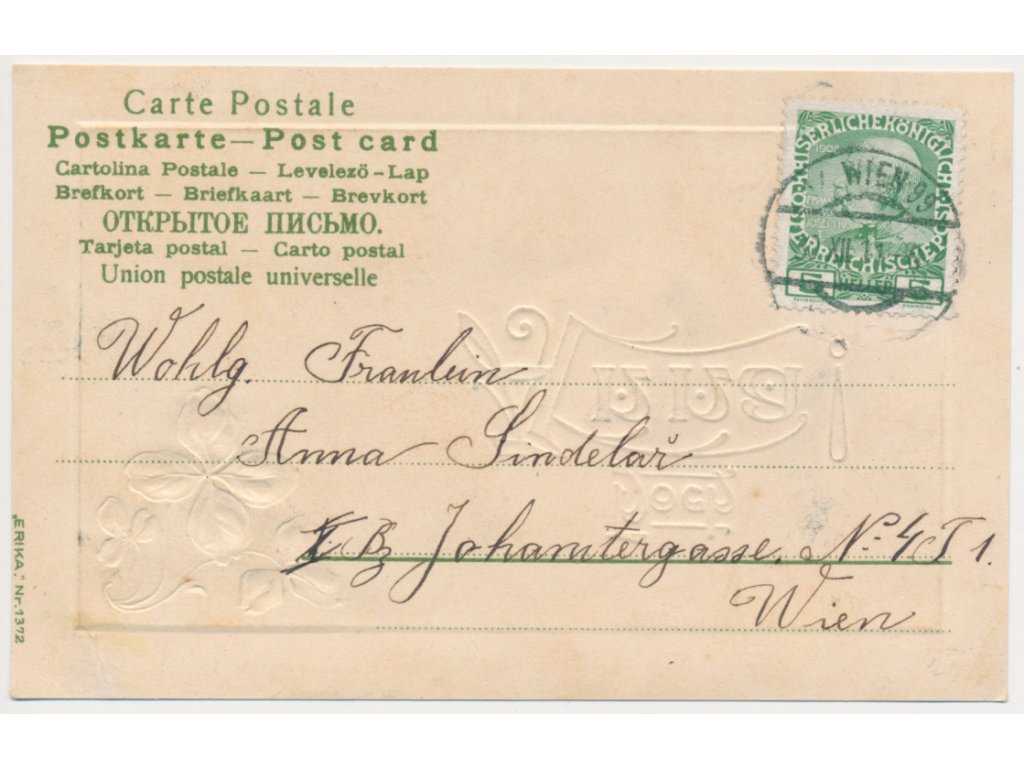 Carte Postale
Postkarte — Post card
Cartolina Postale — Levelező-Lap
Brefkort — Briefkaart — Brevkort
ОТКРЫТОЕ ПИСЬМО.
Tarjeta postal — Carto postal
Union postale universelle
KAISERLICHE KÖNIGLICHE
ÖSTERREICHISCHE POST
1908
5 HELLER 5
WIEN
XII 11
Wohlg. Fraulein
Anna Sindelář
Johannitergasse. No. 4 T 1.
Wien
"ERIKA." Nr. 1372